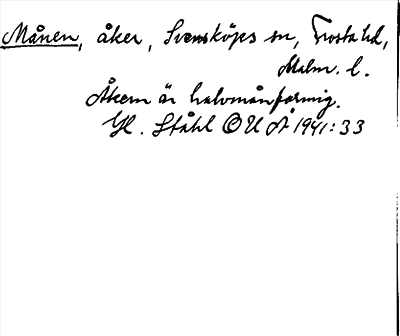 Månen, åker, Svensköps sn, Frosta hd,
Malm. l.
Åkern är halvmånformig.
Hj. Ståhl OUÅ 1941:33